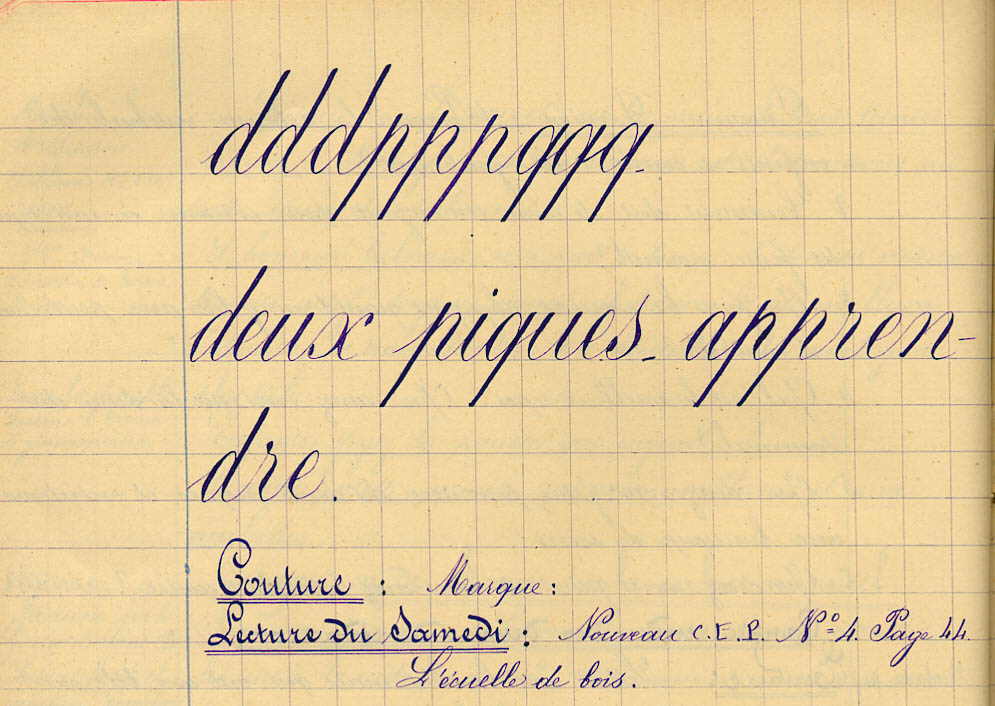 dddpppqqq.
deux piques. appren-
dre.
Couture : Marque :
Lecture du Samedi : Nouveau C.E.P. N° 4. Page 44.
L'écuelle de bois.